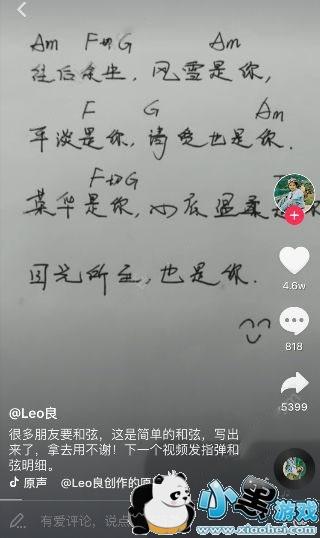 Am F G Am
往后余生，风雪是你，
F G Am
平淡是你，清贫也是你.
F G
荣华是你，心底温柔是
目光所至，也是你.
4.6w
818
5399
@Leo良
很多朋友要和弦，这是简单的和弦，写出
来了，拿去用不谢！下一个视频发指弹和
弦明细。
原声 @Leo良创作的原
有爱评论，说点
小黑游戏
www.xiaohei.com